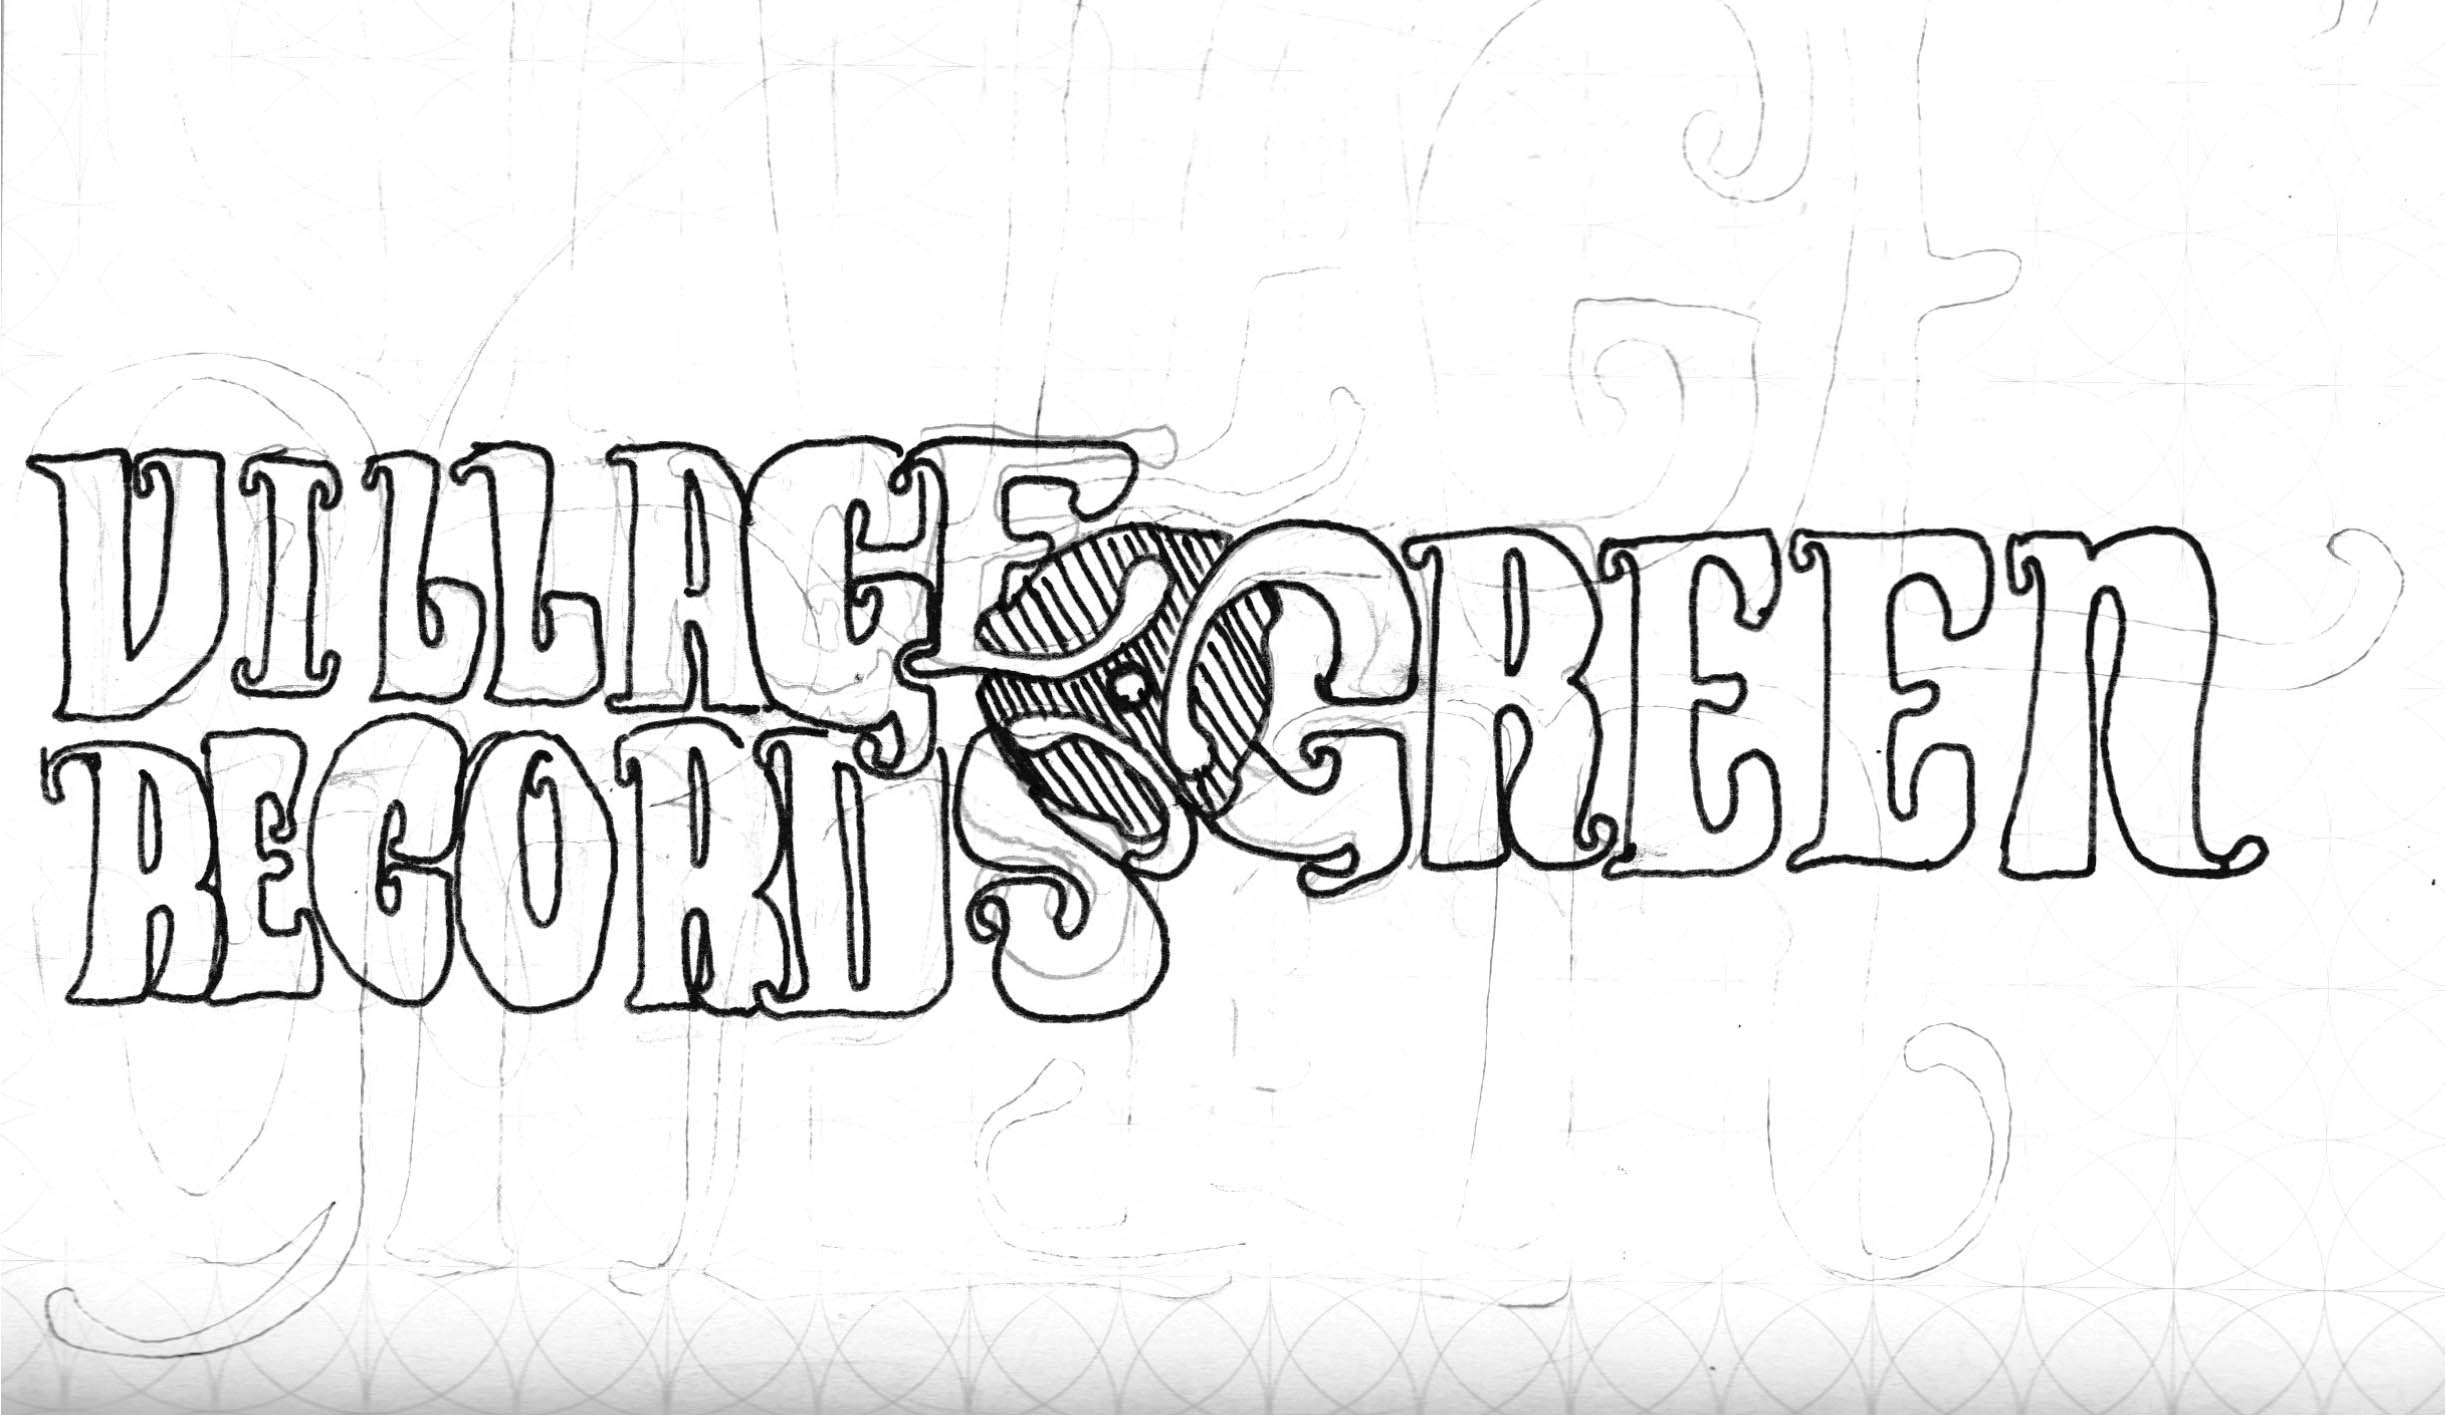 VILLAGE
GREEN
RECORDS